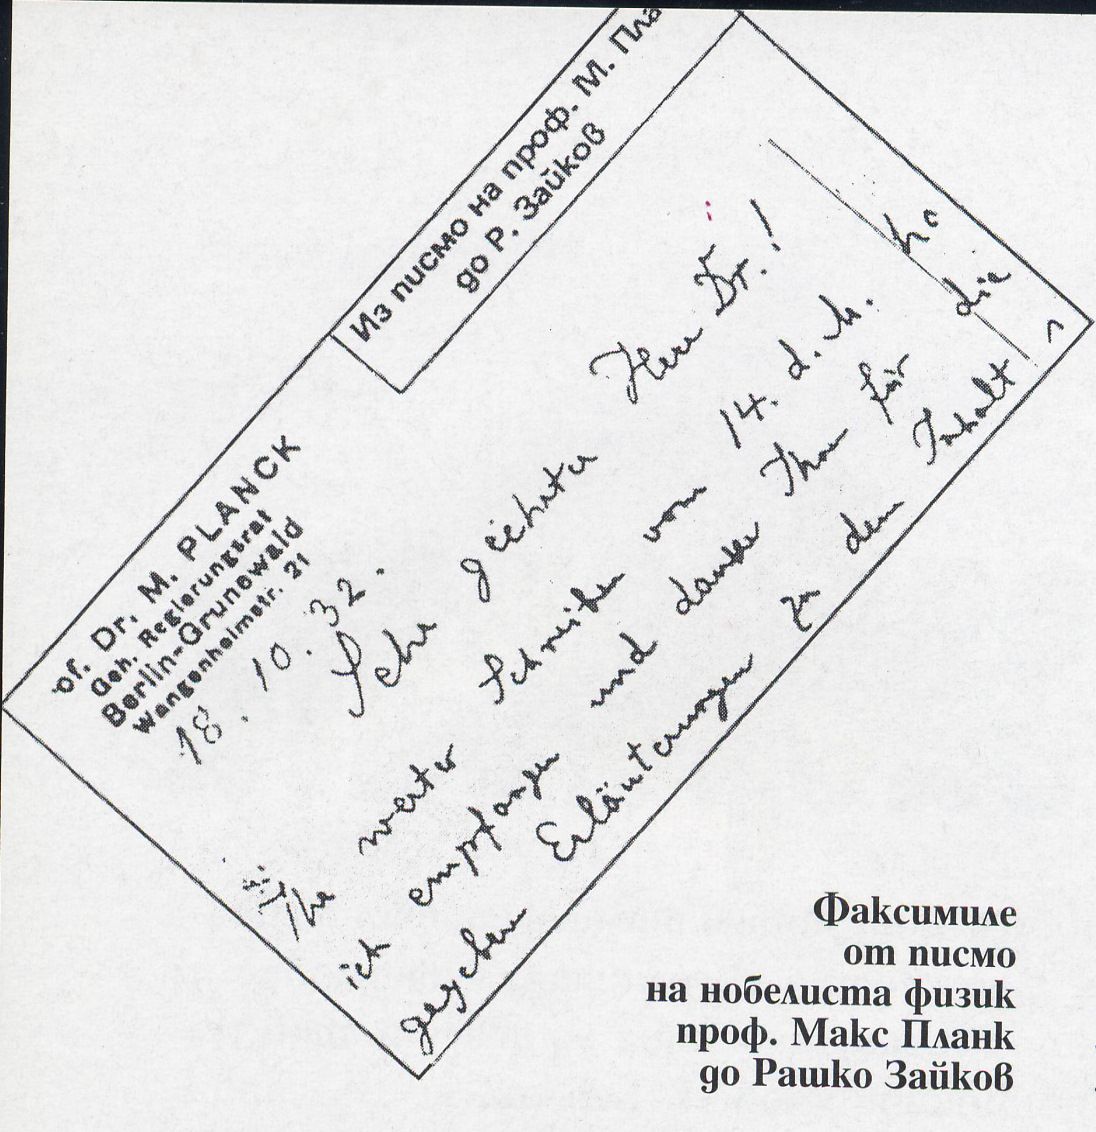 Из писмо на проф. М. Пла
до Р. Зайков
of. Dr. M. PLANCK
Geh. Regierungsrat
Berlin-Grunewald
Wangenheimstr. 21
18. 10. 32.
Sehr geehrter Herr Dr.!
Ihr wertes Schreiben vom 14. d. M. ha
ich empfangen und danke Ihnen für die
gegebenen Erläuterungen zu dem Inhalt
Факсимиле
от писмо
на нобелиста физик
проф. Макс Планк
до Рашко Зайков